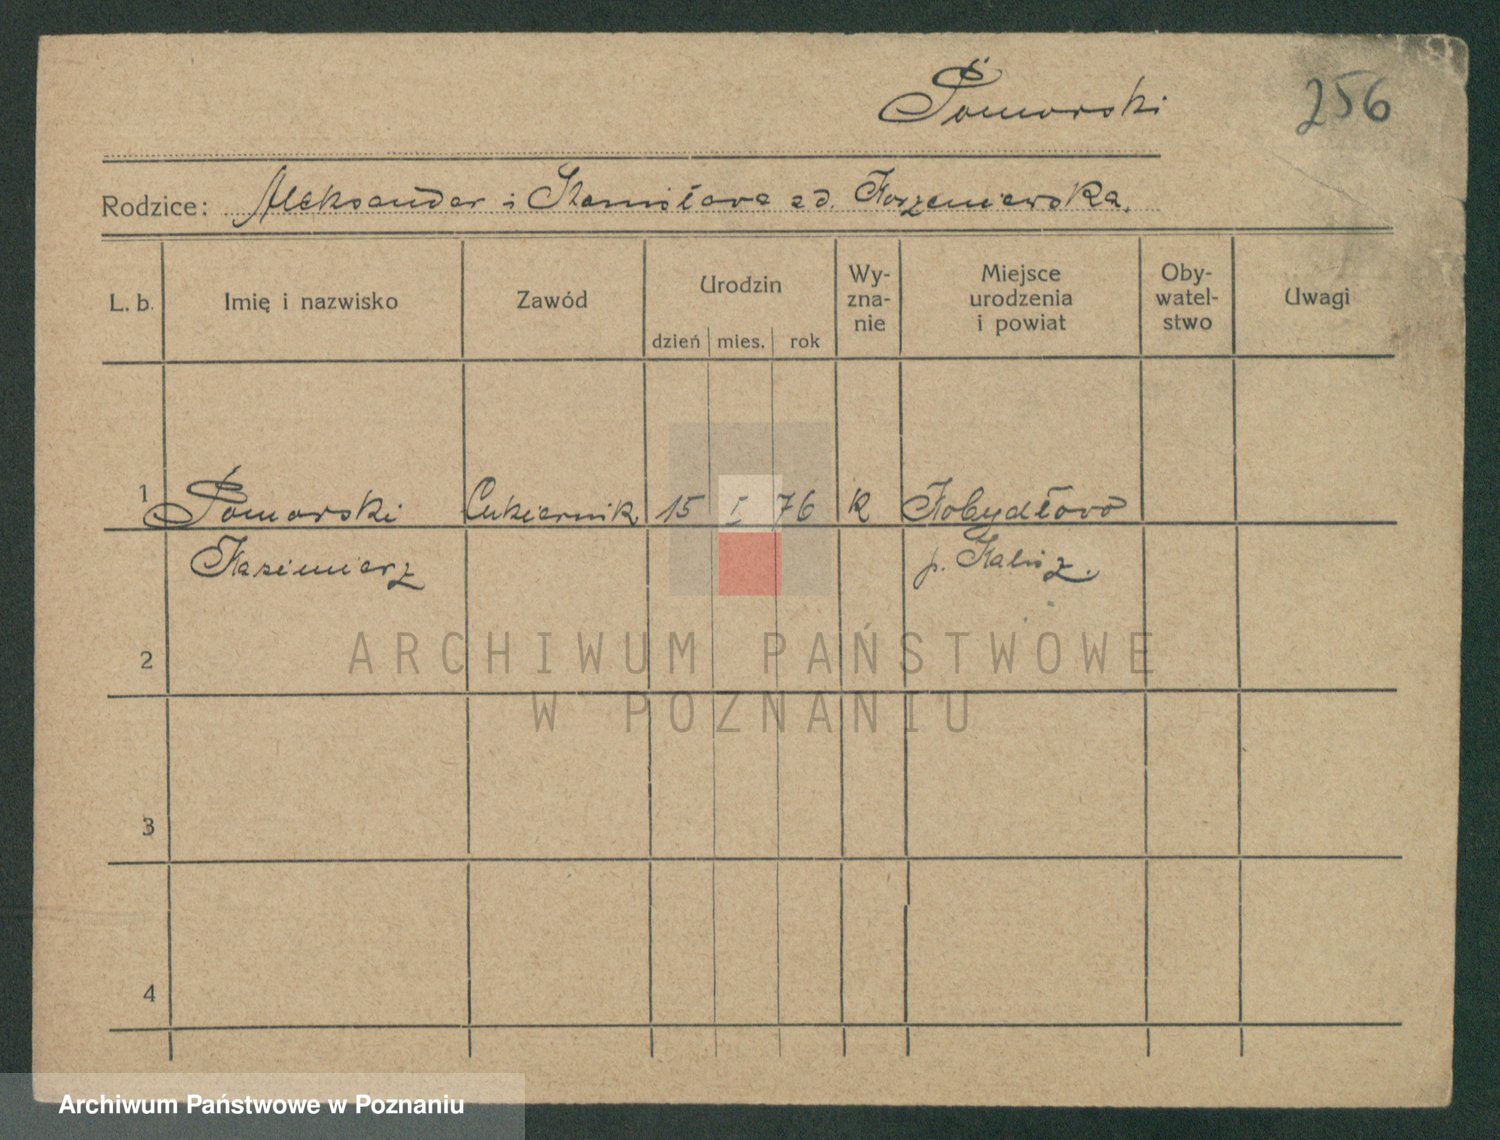 Pomorski
256
Rodzice: Aleksander i Stanisława zd. Korzeniewska.
L. b. Imię i nazwisko Zawód Urodzin dzień mies. rok Wy-zna-nie Miejsce urodzenia i powiat Oby-watel-stwo Uwagi
1 Pomorski Cukiernik 15 I 76 k Kobydłowo
Kazimierz p. Kalisz.
2
ARCHIWUM PAŃSTWOWE
W POZNANIU
3
4
Archiwum Państwowe w Poznaniu